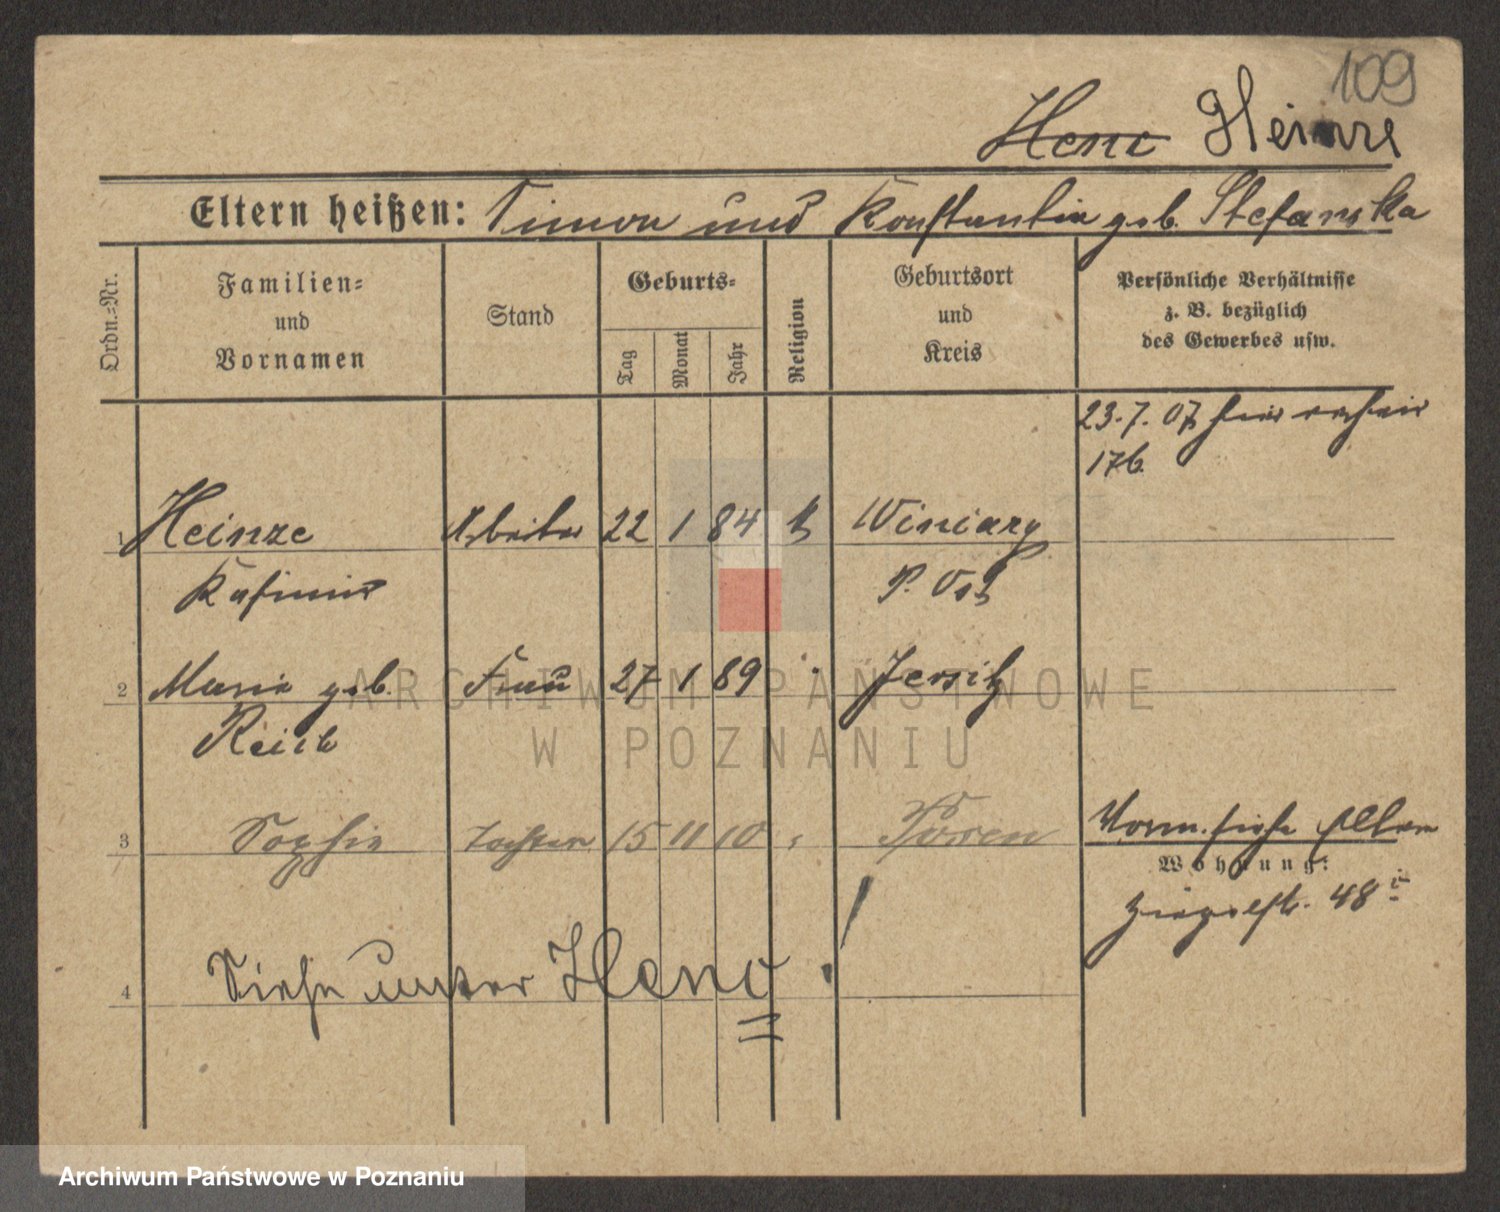 109
Henc Heinze
Eltern heißen: Simon und Konstantin geb. Stefanska
Ordn.=Nr.
Familien=
und
Vornamen
Stand
Geburts=
Tag
Monat
Jahr
Religion
Geburtsort
und
Kreis
Persönliche Verhältnisse
z. B. bezüglich
des Gewerbes usw.
23.7.07 hier
176
1 Heinze Arbeiter 22 1 84 k Winiary
Kasimir P. Ost
2 Maria geb. Frau 27 1 89 Jersitz
Reich
3 Sophie Tochter 15 11 10 Posen
Vorm. siehe Eltern
Wohnung:
Ziegelstr. 48
4 Siehe unter Henc !
ARCHIWUM PAŃSTWOWE
W POZNANIU
Archiwum Państwowe w Poznaniu